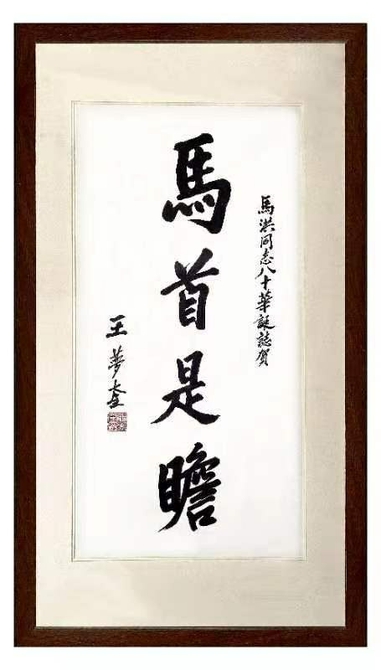 馬洪同志八十華誕誌賀
馬首是瞻
王夢奎